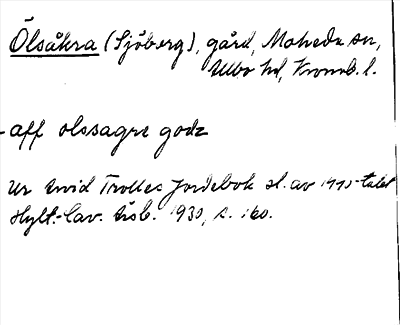 Ölsåkra (Sjöberg), gård, Moheda sn,
Albo hd, Kronob. l.
aff olssagre godz
Ur Arvid Trolles Jordebok sl. av 1490-talet
Hylt.-Cav. Årsb. 1930, s. 160.